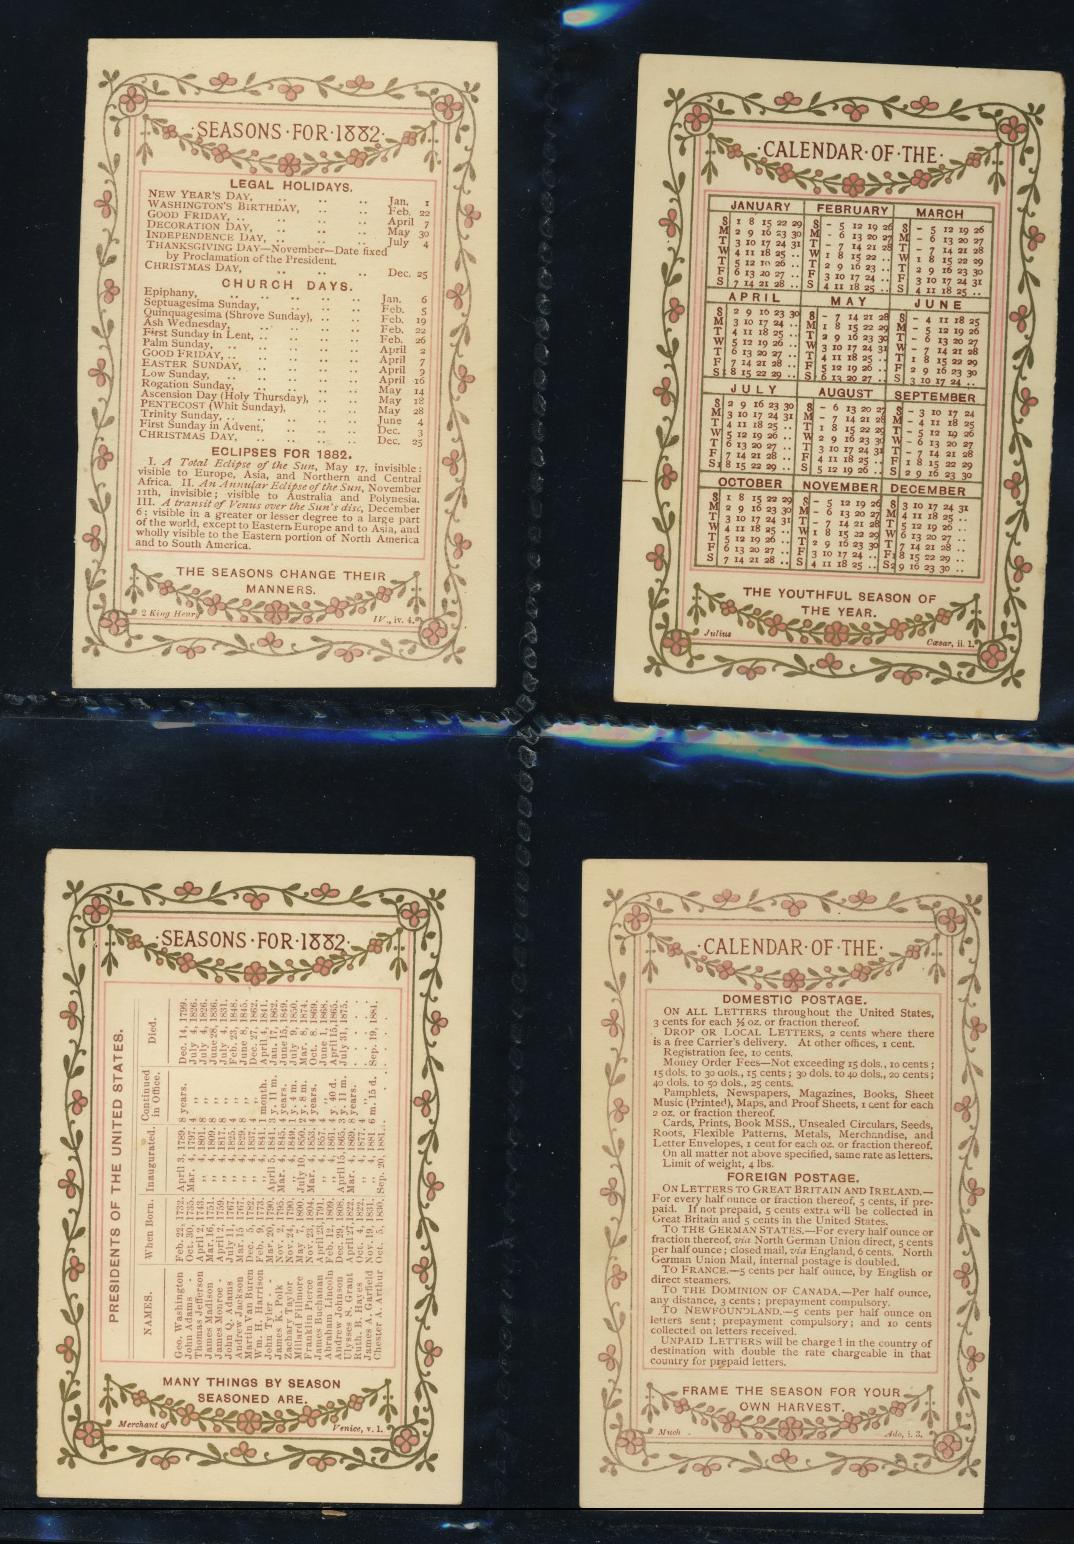 ·SEASONS·FOR·1882·
LEGAL HOLIDAYS.
NEW YEAR'S DAY, .. .. .. Jan. 1
WASHINGTON'S BIRTHDAY, .. .. Feb. 22
GOOD FRIDAY, .. .. .. .. April 7
DECORATION DAY, .. .. .. May 30
INDEPENDENCE DAY, .. .. .. July 4
THANKSGIVING DAY—November—Date fixed
by Proclamation of the President.
CHRISTMAS DAY, .. .. .. Dec. 25
CHURCH DAYS.
Epiphany, .. .. .. .. .. Jan. 6
Septuagesima Sunday, .. .. .. Feb. 5
Quinquagesima (Shrove Sunday), .. .. Feb. 19
Ash Wednesday, .. .. .. .. Feb. 22
First Sunday in Lent, .. .. .. Feb. 26
Palm Sunday, .. .. .. .. April 2
GOOD FRIDAY, .. .. .. .. April 7
EASTER SUNDAY, .. .. .. April 9
Low Sunday, .. .. .. .. April 16
Rogation Sunday, .. .. .. May 14
Ascension Day (Holy Thursday), .. .. May 18
PENTECOST (Whit Sunday), .. .. May 28
Trinity Sunday, .. .. .. .. June 4
First Sunday in Advent, .. .. .. Dec. 3
CHRISTMAS DAY, .. .. .. Dec. 25
ECLIPSES FOR 1882.
I. A Total Eclipse of the Sun, May 17, invisible:
visible to Europe, Asia, and Northern and Central
Africa. II. An Annular Eclipse of the Sun, November
11th, invisible; visible to Australia and Polynesia.
III. A transit of Venus over the Sun's disc, December
6; visible in a greater or lesser degree to a large part
of the world, except to Eastern Europe and to Asia, and
wholly visible to the Eastern portion of North America
and to South America.
THE SEASONS CHANGE THEIR
MANNERS.
2 King Henry IV., iv. 4.
·CALENDAR·OF·THE·
JANUARY FEBRUARY MARCH
S 1 8 15 22 29 S - 5 12 19 26 S - 5 12 19 26
M 2 9 16 23 30 M - 6 13 20 27 M - 6 13 20 27
T 3 10 17 24 31 T - 7 14 21 28 T - 7 14 21 28
W 4 11 18 25 .. W 1 8 15 22 .. W 1 8 15 22 29
T 5 12 19 26 .. T 2 9 16 23 .. T 2 9 16 23 30
F 6 13 20 27 .. F 3 10 17 24 .. F 3 10 17 24 31
S 7 14 21 28 .. S 4 11 18 25 .. S 4 11 18 25 ..
APRIL MAY JUNE
S 2 9 16 23 30 S - 7 14 21 28 S - 4 11 18 25
M 3 10 17 24 .. M 1 8 15 22 29 M - 5 12 19 26
T 4 11 18 25 .. T 2 9 16 23 30 T - 6 13 20 27
W 5 12 19 26 .. W 3 10 17 24 31 W - 7 14 21 28
T 6 13 20 27 .. T 4 11 18 25 .. T 1 8 15 22 29
F 7 14 21 28 .. F 5 12 19 26 .. F 2 9 16 23 30
S 1 8 15 22 29 .. S 6 13 20 27 .. S 3 10 17 24 ..
JULY AUGUST SEPTEMBER
S 2 9 16 23 30 S - 6 13 20 27 S - 3 10 17 24
M 3 10 17 24 31 M - 7 14 21 28 M - 4 11 18 25
T 4 11 18 25 .. T 1 8 15 22 29 T - 5 12 19 26
W 5 12 19 26 .. W 2 9 16 23 30 W - 6 13 20 27
T 6 13 20 27 .. T 3 10 17 24 31 T - 7 14 21 28
F 7 14 21 28 .. F 4 11 18 25 .. F 1 8 15 22 29
S 1 8 15 22 29 .. S 5 12 19 26 .. S 2 9 16 23 30
OCTOBER NOVEMBER DECEMBER
S 1 8 15 22 29 S - 5 12 19 26 S 3 10 17 24 31
M 2 9 16 23 30 M - 6 13 20 27 M 4 11 18 25 ..
T 3 10 17 24 31 T - 7 14 21 28 T 5 12 19 26 ..
W 4 11 18 25 .. W 1 8 15 22 29 W 6 13 20 27 ..
T 5 12 19 26 .. T 2 9 16 23 30 T 7 14 21 28 ..
F 6 13 20 27 .. F 3 10 17 24 .. F 1 8 15 22 29 ..
S 7 14 21 28 .. S 4 11 18 25 .. S 2 9 16 23 30 ..
THE YOUTHFUL SEASON OF
THE YEAR.
Julius Cæsar, ii. 1.
·SEASONS·FOR·1882·
PRESIDENTS OF THE UNITED STATES.
NAMES. When Born. Inaugurated. Continued in Office. Died.
Geo. Washington Feb. 22, 1732. April 3, 1789. 8 years. Dec. 14, 1799.
John Adams - Oct. 30, 1735. Mar. 4, 1797. 4 ,, July 4, 1826.
Thomas Jefferson April 2, 1743. ,, 4, 1801. 8 ,, July 4, 1826.
James Madison Mar. 16, 1751. ,, 4, 1809. 8 ,, June 28, 1836.
James Monroe - April 2, 1759. ,, 4, 1817. 8 ,, July 4, 1831.
John Q. Adams July 11, 1767. ,, 4, 1825. 4 ,, Feb. 23, 1848.
Andrew Jackson Mar. 15, 1767. ,, 4, 1829. 8 ,, June 8, 1845.
Martin Van Buren Dec. 5, 1782. ,, 4, 1837. 4 ,, Dec. 27, 1862.
Wm. H. Harrison Feb. 9, 1773. ,, 4, 1841. 1 month. April 4, 1841.
John Tyler - Mar. 20, 1790. April 5, 1841. 3 y. 11 m. Jan. 17, 1862.
James K. Polk Nov. 2, 1795. Mar. 4, 1845. 4 years. June 15, 1849.
Zachary Taylor Nov. 24, 1790. ,, 4, 1849. 1 y. 4 m. July 9, 1850.
Millard Fillmore May 7, 1800. July 10, 1850. 2 y. 8 m. Mar. 8, 1874.
Franklin Pierce Nov. 23, 1804. Mar. 4, 1853. 4 years. Oct. 8, 1869.
James Buchanan April 23, 1791. ,, 4, 1857. 4 ,, June 1, 1868.
Abraham Lincoln Feb. 12, 1809. ,, 4, 1861. 4 y. 40 d. April 15, 1865.
Andrew Johnson Dec. 29, 1808. April 15, 1865. 3 y. 11 m. July 31, 1875.
Ulysses S. Grant April 27, 1822. Mar. 4, 1869. 8 years.
Ruth. B. Hayes Oct. 4, 1822. ,, 4, 1877. 4 ,,
James A. Garfield Nov. 19, 1831. ,, 4, 1881. 6 m. 15 d. Sep. 19, 1881.
Chester A. Arthur Oct. 5, 1830. Sep. 20, 1881.
MANY THINGS BY SEASON
SEASONED ARE.
Merchant of Venice, v. 1.
·CALENDAR·OF·THE·
DOMESTIC POSTAGE.
ON ALL LETTERS throughout the United States,
3 cents for each ½ oz. or fraction thereof.
DROP OR LOCAL LETTERS, 2 cents where there
is a free Carrier's delivery. At other offices, 1 cent.
Registration fee, 10 cents.
Money Order Fees—Not exceeding 15 dols., 10 cents;
15 dols. to 30 dols., 15 cents; 30 dols. to 40 dols., 20 cents;
40 dols. to 50 dols., 25 cents.
Pamphlets, Newspapers, Magazines, Books, Sheet
Music (Printed), Maps, and Proof Sheets, 1 cent for each
2 oz. or fraction thereof.
Cards, Prints, Book MSS., Unsealed Circulars, Seeds,
Roots, Flexible Patterns, Metals, Merchandise, and
Letter Envelopes, 1 cent for each oz. or fraction thereof.
On all matter not above specified, same rate as letters.
Limit of weight, 4 lbs.
FOREIGN POSTAGE.
ON LETTERS TO GREAT BRITAIN AND IRELAND.—
For every half ounce or fraction thereof, 5 cents, if pre-
paid. If not prepaid, 5 cents extra will be collected in
Great Britain and 5 cents in the United States.
TO THE GERMAN STATES.—For every half ounce or
fraction thereof, via North German Union direct, 5 cents
per half ounce; closed mail, via England, 6 cents. North
German Union Mail, internal postage is doubled.
TO FRANCE.—5 cents per half ounce, by English or
direct steamers.
TO THE DOMINION OF CANADA.—Per half ounce,
any distance, 3 cents; prepayment compulsory.
TO NEWFOUNDLAND.—5 cents per half ounce on
letters sent; prepayment compulsory; and 10 cents
collected on letters received.
UNPAID LETTERS will be charged in the country of
destination with double the rate chargeable in that
country for prepaid letters.
FRAME THE SEASON FOR YOUR
OWN HARVEST.
Much Ado, i. 3.